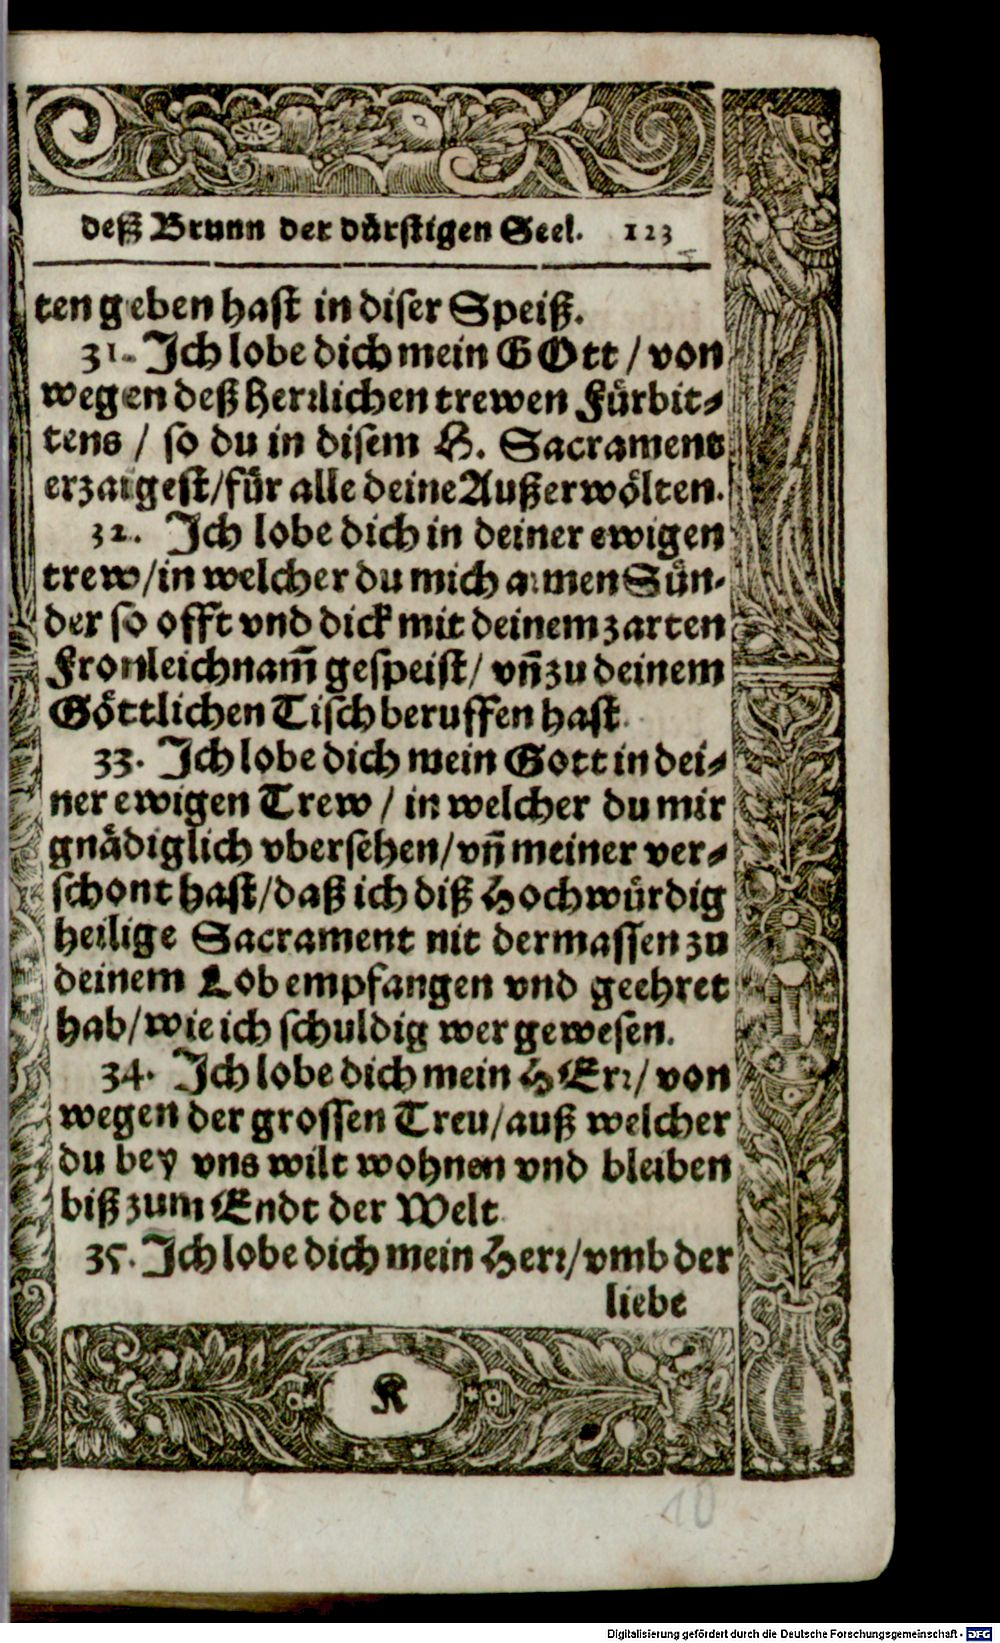 deß Brunn der dürstigen Seel. 123
ten geben hast in diser Speiß.
31. Ich lobe dich mein GOtt / von
wegen deß herrlichen trewen Fürbit-
tens / so du in disem H. Sacrament
erzaigest/für alle deine Außerwölten.
32. Ich lobe dich in deiner ewigen
trew/in welcher du mich armen Sün-
der so offt vnd dick mit deinem zarten
Fronleichnam̃ gespeist/ vñ zu deinem
Göttlichen Tisch beruffen hast.
33. Ich lobe dich mein Gott in dei-
ner ewigen Trew / in welcher du mir
gnädiglich vbersehen/vñ meiner ver-
schont hast/daß ich diß Hochwürdig
heilige Sacrament nit dermassen zu
deinem Lob empfangen vnd geehret
hab/wie ich schuldig wer gewesen.
34. Ich lobe dich mein HErr/ von
wegen der grossen Treu/auß welcher
du bey vns wilt wohnen vnd bleiben
biß zum Endt der Welt.
35. Ich lobe dich mein Herr/vmb der
liebe
K
10
Digitalisierung gefördert durch die Deutsche Forschungsgemeinschaft - DFG